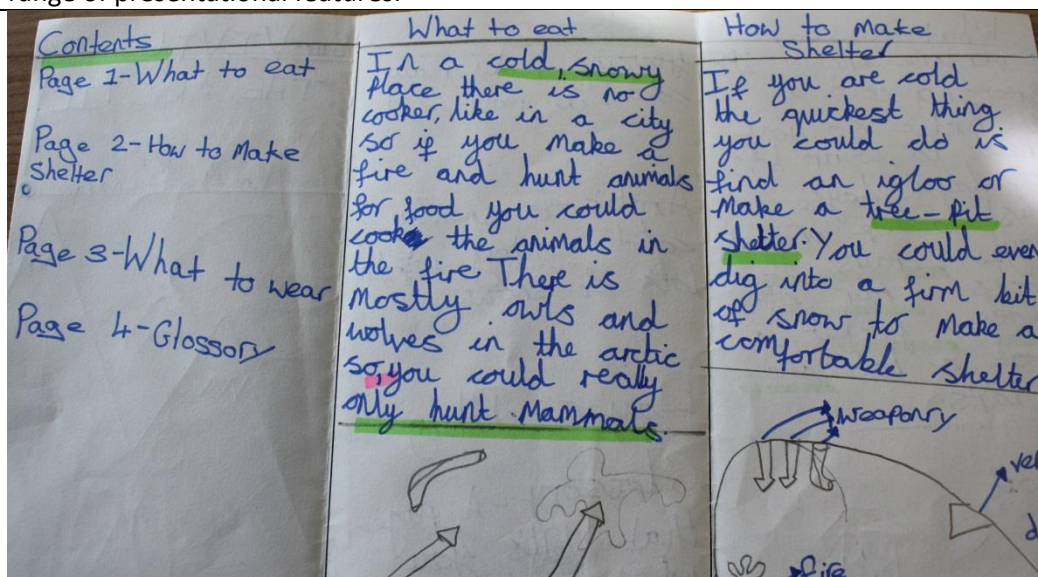 range of presentational features.
Contents
Page 1-What to eat
Page 2-How to Make
Shelter
Page 3-What to wear
Page 4-Glossory
What to eat
In a cold, snowy
place there is no
cooker, like in a city
so if you make a
fire and hunt animals
for food you could
cook the animals in
the fire There is
mostly owls and
wolves in the arctic
so, you could really
only hunt mammals.
How to make
Shelter
If you are cold
the quickest thing
you could do is
find an igloo or
make a tree-pit
shelter. You could even
dig into a firm bit
of snow to make a
comfortable shelter
weaponry
fire